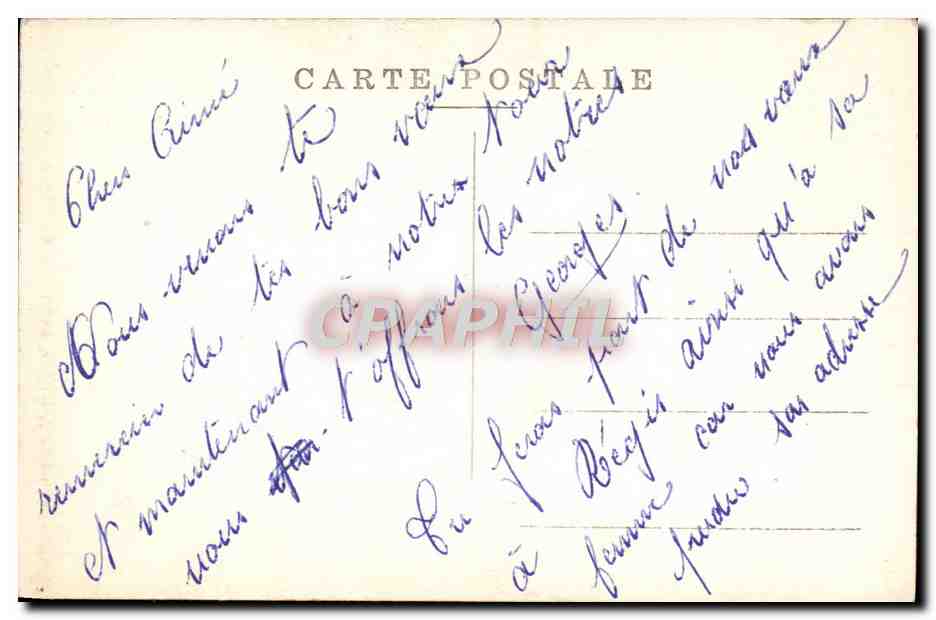 CARTE POSTALE
Cher Aimé
Nous venons te
remercier de tes bons vœux
et maintenant à notre tour
nous t'offrons les notres
Georges.
Tu feras part de nos vœux
à Régis ainsi qu'à sa
femme car nous avons
perdu son adresse
CPAPHIL